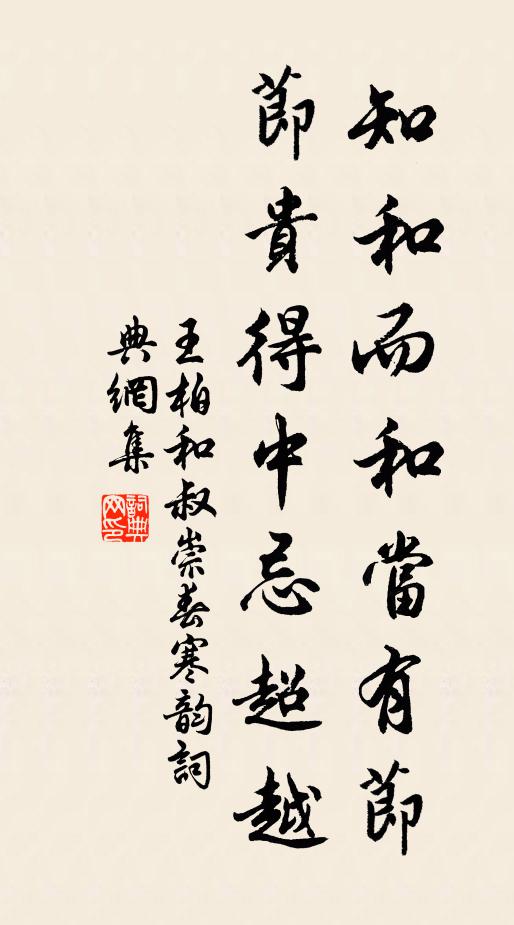 知和而和當有節
節貴得中忌超越
王柏和叔崇春寒韵詞
典網集
詞典网印